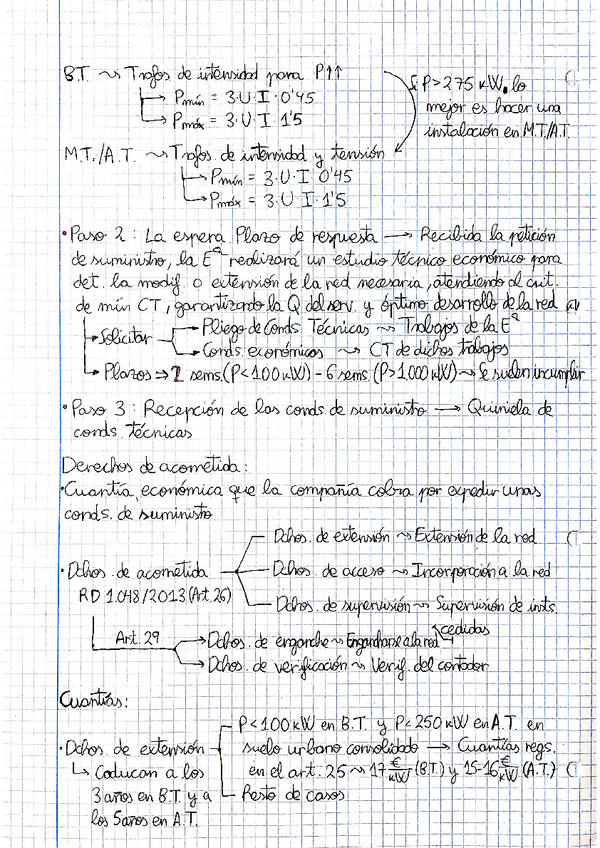 B.T. ⇝ Trafos de intensidad para P↑↑
→ Pmín = 3·U·I·0'45
→ Pmáx = 3·U·I·1'5
Si P>275 kW, lo
mejor es hacer una
instalación en M.T/A.T.
M.T./A.T. ⇝ Trafos. de intensidad y tensión
→ Pmín = 3·U·I·0'45
→ Pmáx = 3·U·I·1'5
• Paso 2: La espera. Plazo de respuesta → Recibida la petición
de suministro, la Eª realizará un estudio técnico económico para
det. la modif. o extensión de la red necesaria, atendiendo al crit.
de mín CT, garantizando la Q del serv. y óptimo desarrollo de la red
→ Solicitar → Pliego de Conds. Técnicas ⇝ Trabajos de la Eª
→ Conds. económicas ⇝ CT de dichos trabajos
→ Plazos ⇒ 2 sems. (P<100kW) - 6 sems. (P>1.000kW) ⇝ Se suelen incumplir
• Paso 3: Recepción de las conds. de suministro → Quiniela de
conds. técnicas
Derechos de acometida:
• Cuantía económica que la compañía cobra por expedir unas
conds. de suministro
• Dchos. de acometida
RD 1.048/2013 (Art. 26)
Dchos. de extensión ⇝ Extensión de la red
Dchos. de acceso ⇝ Incorporación a la red
Dchos. de supervisión ⇝ Supervisión de insts.
cedidas
Art. 29 → Dchos. de enganche ⇝ Engancharse a la red
→ Dchos. de verificación ⇝ Verif. del contador
Cuantías:
• Dchos. de extensión
↳ Caducan a los
3 años en B.T. y a
los 5 años en A.T.
P<100kW en B.T. y P<250kW en A.T. en
suelo urbano consolidado → Cuantías regs.
en el art. 25 ⇝ 17 €/kW (B.T.) y 15-16 €/kW (A.T.)
Resto de casos